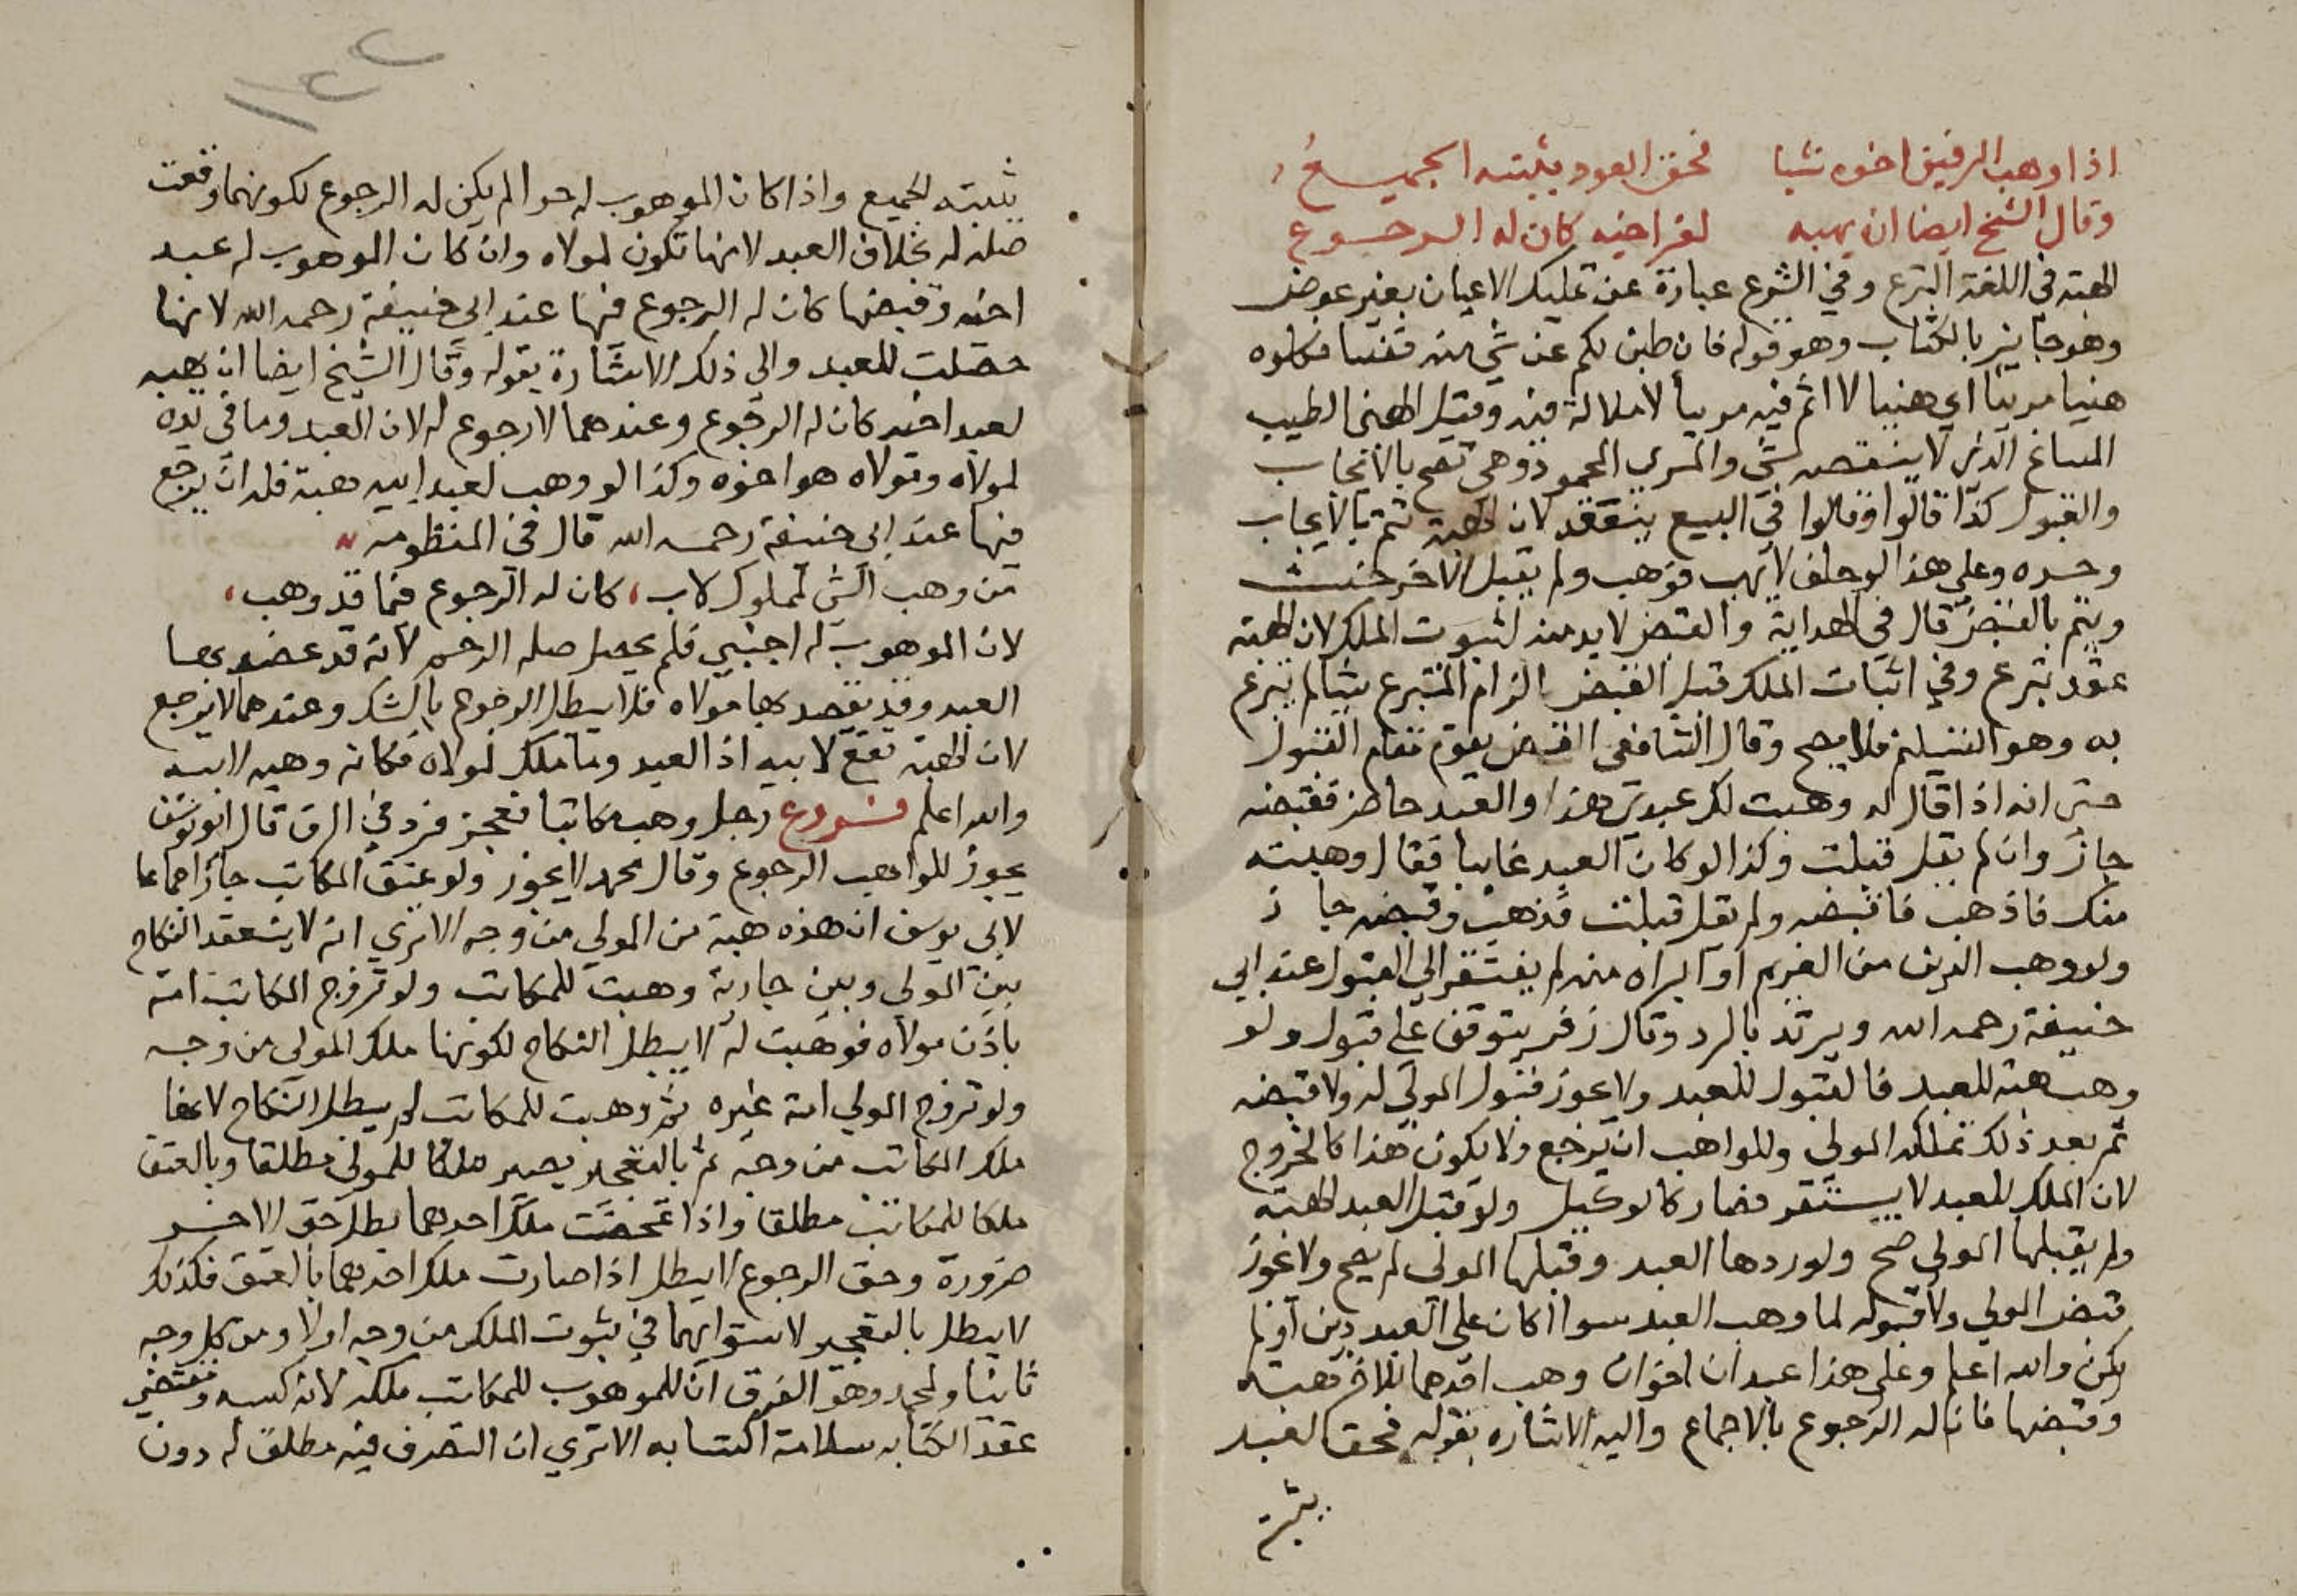 اذا وهب الرقيق اخوه شيا فحق العود يثبته الجميع
وقال الشيخ ايضا ان يهبه لقن اخيه كان له الرجوع
الهبة في اللغة التبرع وفي الشرع عبارة عن تمليك الاعيان بغير عوض
وهو جايز بالكتاب وهو قوله فان طبن لكم عن شي منه نفسا فكلوه
هنيا مريئا اي هنيا لا اثم فيه مريأ لا ملالة فيه وقيل الهني الطيب
المساغ الذي لا ينقصه شي والمري المحمود وهي تصح بالايجاب
والقبول كذا قالوا وقالوا في البيع ينعقد لان الهبة تتم بالايجاب
وحده وعلى هذا لو حلف لا يهب فوهب ولم يقبل الاخر حنث
ويتم بالقبض قال في الهداية والقبض لا بد منه لثبوت الملك لان الهبة
عقد تبرع وفي اثبات الملك قبل القبض الزام المتبرع شيا لم يتبرع
به وهو التسليم فلا يصح وقال الشافعي القبض يقوم مقام القبول
حتى انه اذا قال له وهبت لك عبدي هذا والعبد حاضر فقبضه
جاز وان لم يقل قبلت وكذا لو كان العبد غايبا فقال وهبته
منك فاذهب فاقبضه ولم يقل قبلت فذهب وقبضه جاز
ولو وهب الدين من الغريم او ابراه منه لم يفتقر الى القبول عند ابي
حنيفة رحمه الله ويرتد بالرد وقال زفر يتوقف على قبول ولو
وهب هبة للعبد فالقبول للعبد ولا يجوز قبول المولى له ولا قبضه
ثم بعد ذلك تملكه المولى وللواهب ان يرجع ولا يكون هذا كالخروج
لان الملك للعبد لا يستقر فصار كالوكيل ولو قبل العبد الهبة
ولم يقبلها المولى صح ولو ردها العبد وقبلها المولى لم يصح ولا يجوز
قبض المولى ولا قبوله لما وهب العبد سوا اكان على العبد دين او لم
يكن والله اعلم وعلى هذا عبد ان اخوان وهب احدهما للاخر هبة
وقبضها فان له الرجوع بالاجماع واليه الاشاره بقوله فحق العبد
يثبته
يثبته الجميع واذا كان الموهوب له حرا لم يكن له الرجوع لكونهما وقعت
صلة له بخلاف العبد لانها تكون لمولاه وان كان الموهوب له عبد
اخيه وقبضها كان له الرجوع فيها عند ابي حنيفة رحمه الله لانها
حصلت للعبد والى ذلك الاشارة بقوله وقال الشيخ ايضا ان يهبه
لعبد اخيه كان له الرجوع وعندهما لا رجوع له لان العبد وما في يده
لمولاه ومولاه هو اخوه وكذا لو وهب لعبد ابيه هبة فله ان يرجع
فيها عند ابي حنيفة رحمه الله قال في المنظومة
من وهب الشي لمملوك لاب، كان له الرجوع فيما قد وهب،
لان الموهوب له اجنبي فلم يحصل صلة الرحم لانه قد يقصد بها
العبد وقد يقصد بها مولاه فلا يبطل الرجوع بالشك وعندهما لا يرجع
لان الهبة تقع لابيه اذ العبد وما ملك لمولاه فكانه وهبه لابيه
والله اعلم فــروع رجل وهب مكاتبا فعجز فرد في الرق قال ابو يوسف
يجوز للواهب الرجوع وقال محمد لا يجوز ولو عتق المكاتب جاز اجماعا
لابي يوسف ان هذه هبة من المولى من وجه الا ترى انه لا ينعقد النكاح
بين المولى وبين جارية وهبت للمكاتب ولو تزوج المكاتب امة
باذن مولاه فوهبت له لا يبطل النكاح لكونها ملك المولى من وجه
ولو تزوج المولى امة غيره ثم وهبت للمكاتب لم يبطل النكاح لانها
ملك المكاتب من وجه ثم بالتعجيز يصير ملكا للمولى مطلقا وبالعتق
ملكا للمكاتب مطلقا واذا تمحضت ملك احدهما بطل حق الاخر
ضرورة وحق الرجوع لا يبطل اذا صارت ملك احدهما بالعتق فكذلك
لا يبطل بالتعجيز لاستوايهما في ثبوت الملك من وجه اولا ومن كل وجه
ثانيا ولمحمد وهو الفرق ان للموهوب للمكاتب ملكه لانه كسبه ومقتضى
عقد الكتابه سلامة اكتسابه الا ترى ان التصرف فيه مطلق له دون